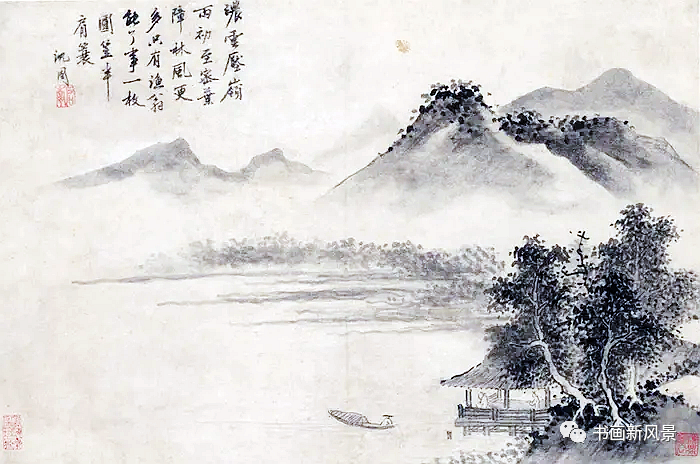 濃雲壓嶺
雨初至密葉
障林風更
多只有漁翁
能了事一枚
團笠半
肩蓑
沈周
书画新风景